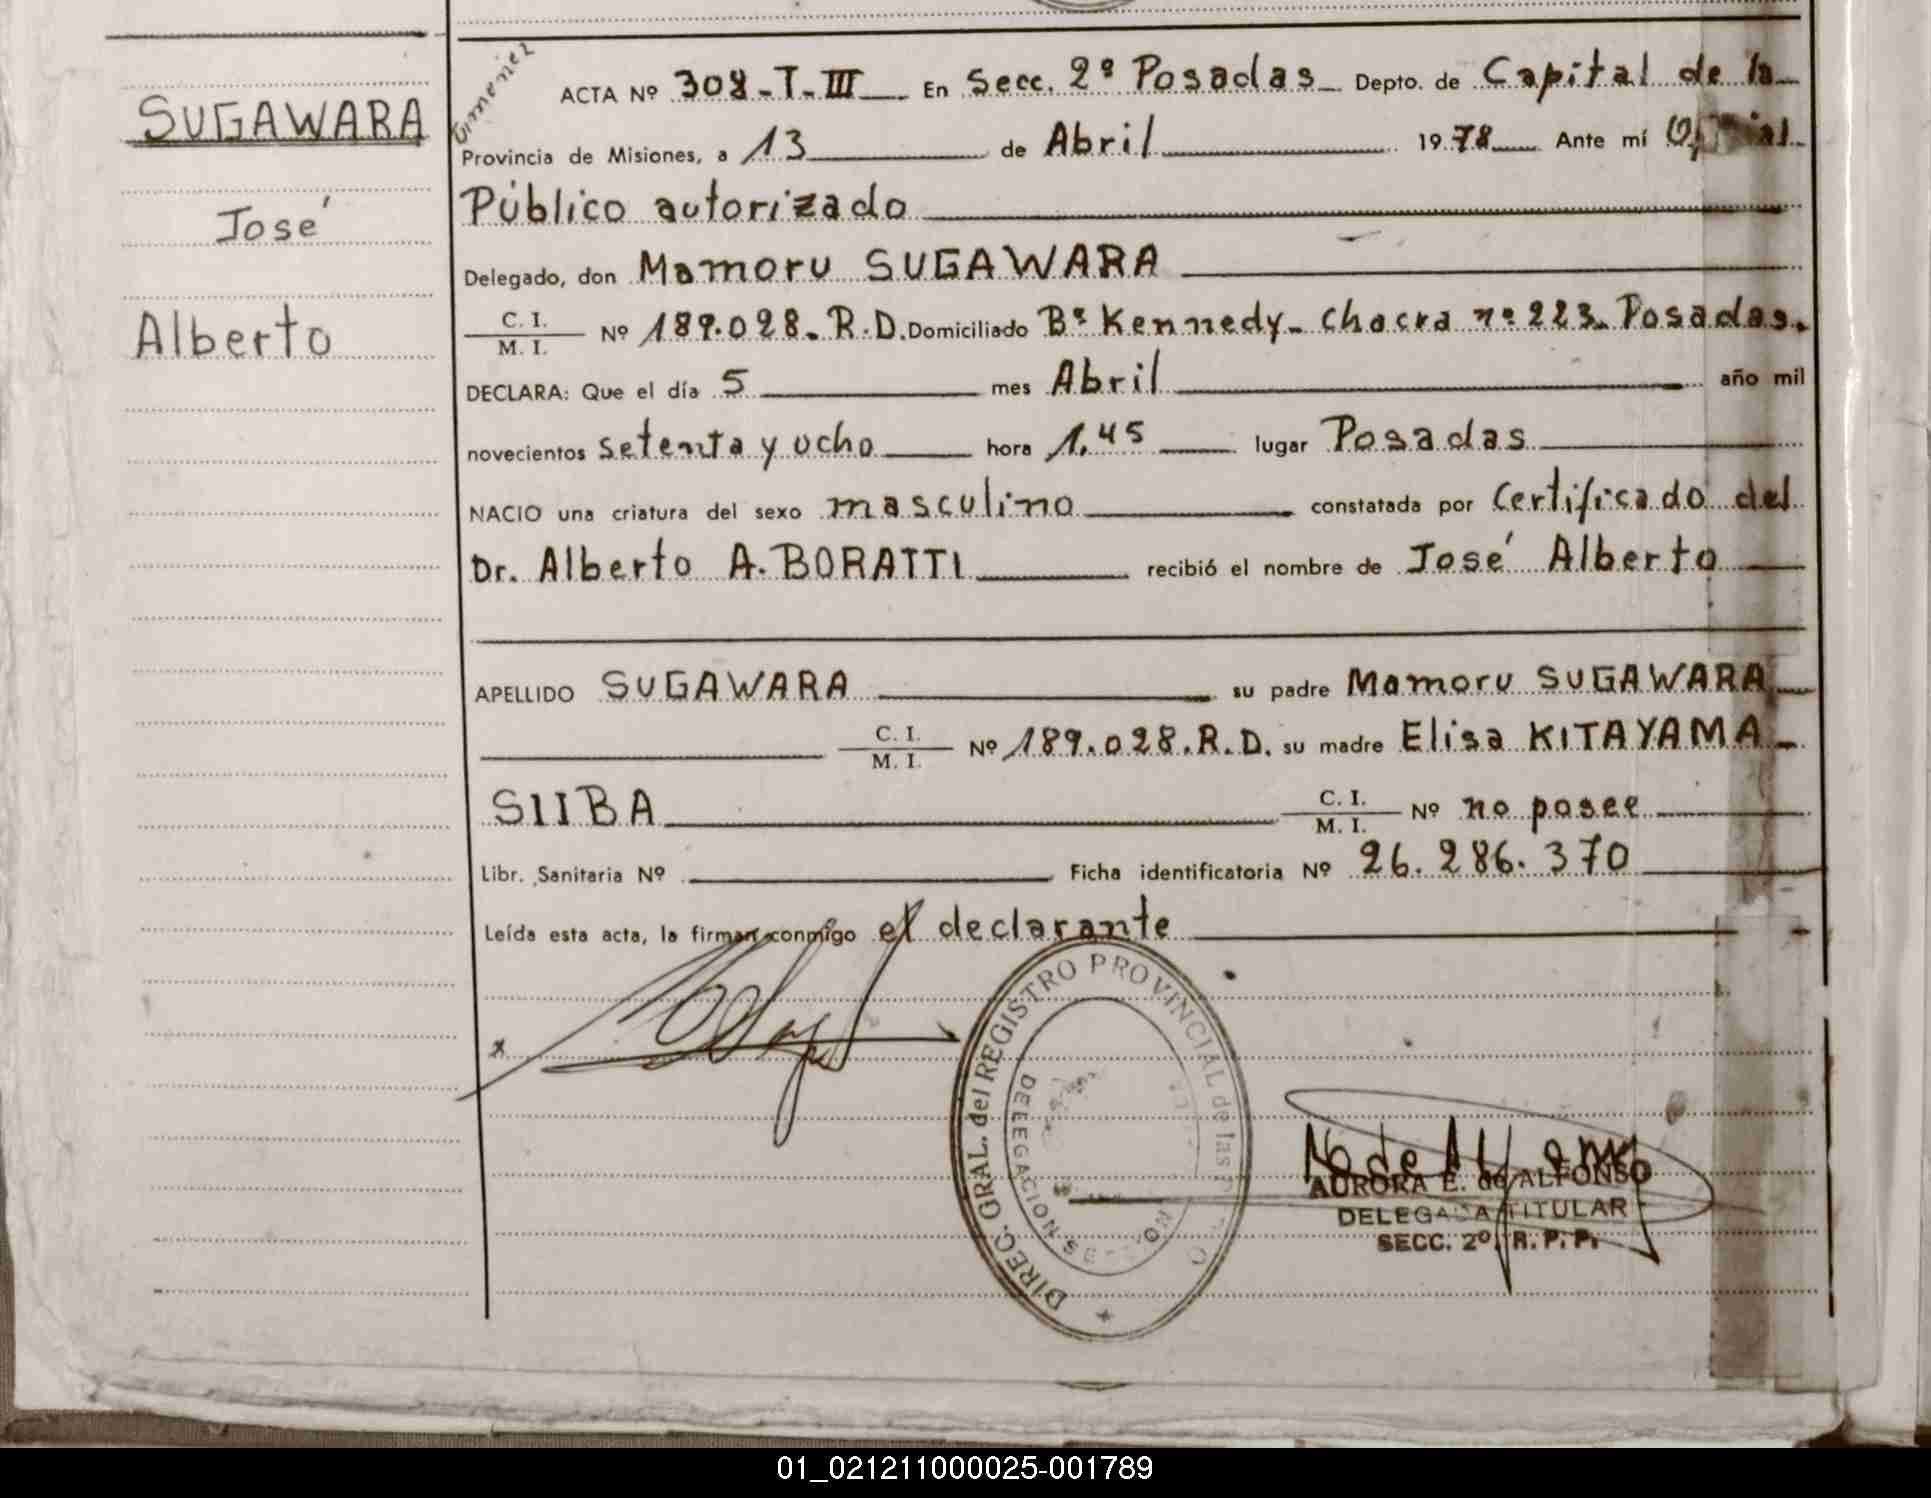 SUGAWARA
José
Alberto
ACTA Nº 308-T-III En Secc. 2º Posadas Depto. de Capital de la
Provincia de Misiones, a 13 de Abril 1978 Ante mí
Público autorizado
Delegado, don Mamoru SUGAWARA
C. I.
M. I. Nº 189.028-R.D. Domiciliado Bº Kennedy - Chacra nº 223. Posadas.
DECLARA: Que el día 5 mes Abril año mil
novecientos setenta y ocho hora 1.45 lugar Posadas
NACIO una criatura del sexo masculino constatada por Certificado del
Dr. Alberto A. BORATTI recibió el nombre de José Alberto
APELLIDO SUGAWARA su padre Mamoru SUGAWARA
C. I.
M. I. Nº 189.028.R.D. su madre Elisa KITAYAMA
SIIBA C. I.
M. I. Nº no posee
Libr. Sanitaria Nº Ficha identificatoria Nº 26.286.370
Leída esta acta, la firman conmigo el declarante
DIREC. GRAL. del REGISTRO PROVINCIAL de las
DELEGACION
AURORA E. de ALFONSO
DELEGADA TITULAR
SECC. 2º. R. P. P.
01_021211000025-001789